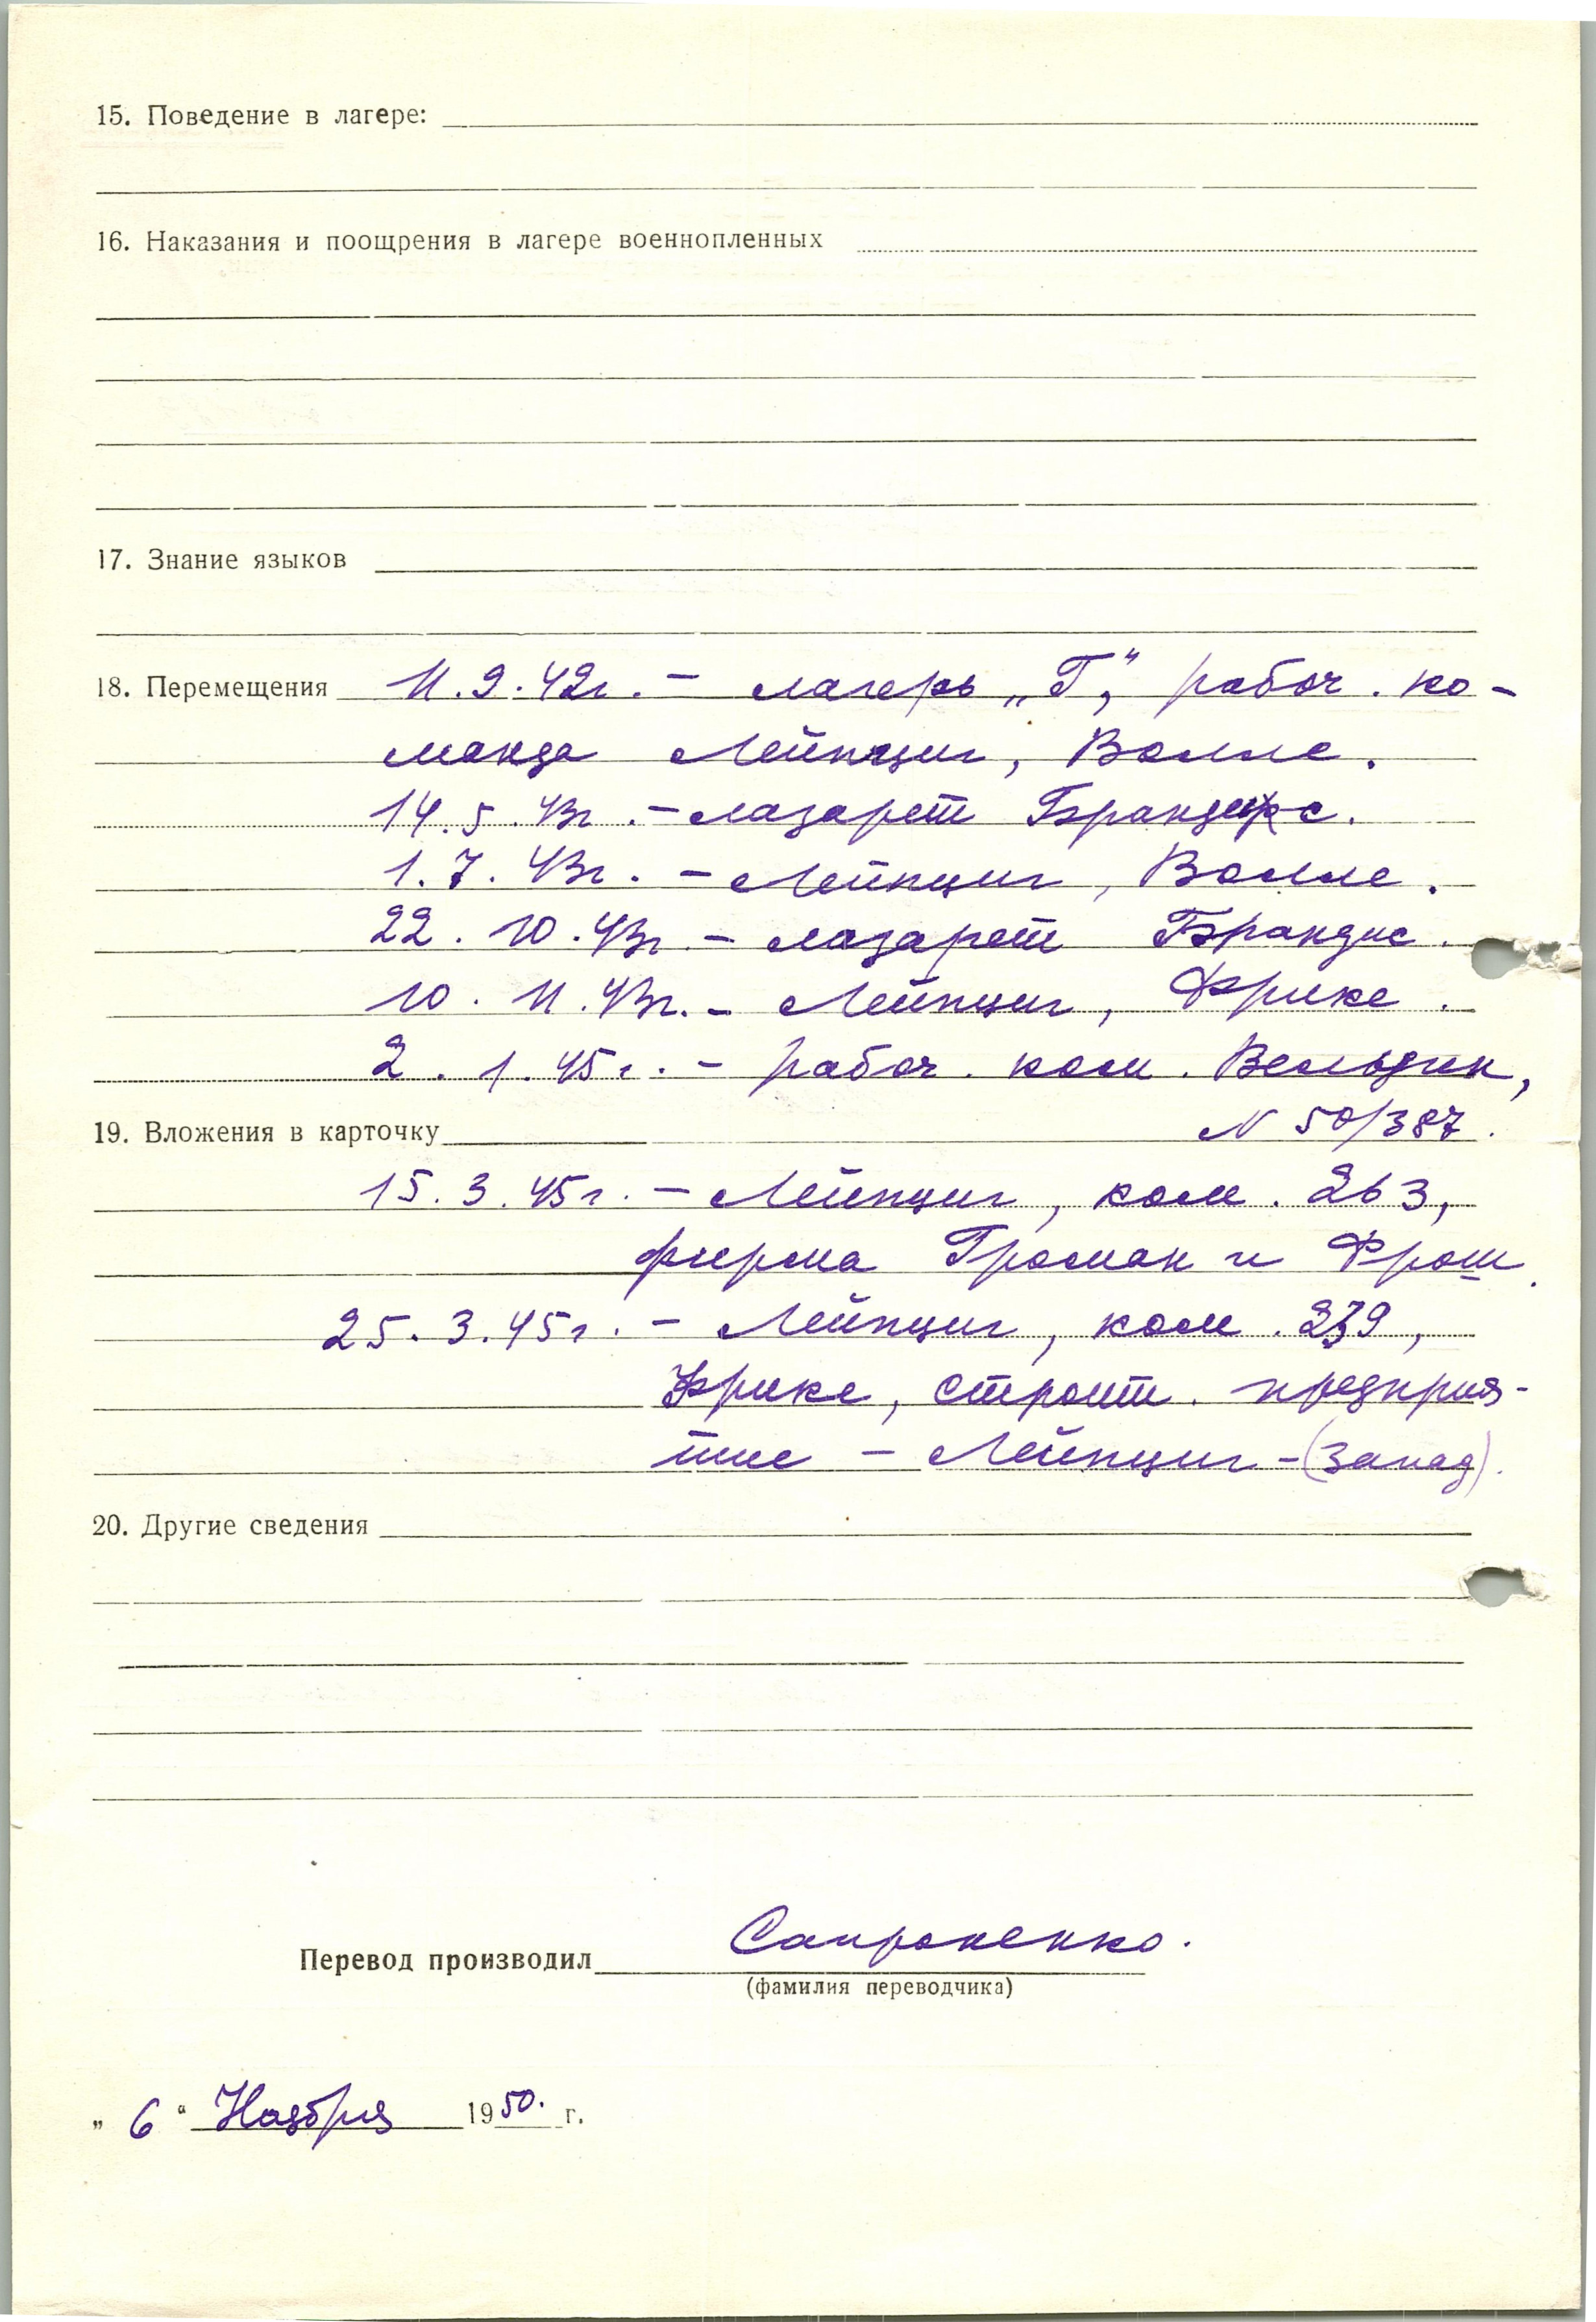 15. Поведение в лагере:
16. Наказания и поощрения в лагере военнопленных
17. Знание языков
18. Перемещения 11.9.42г. – лагерь „Г“, рабоч. ко-
манда Лейпциг, Волле.
14.5.43г. – лазарет Брандис.
1.7.43г. – Лейпциг, Волле.
22.10.43г. – лазарет Брандис.
10.11.43г. – Лейпциг, Фрике.
2.1.45г. – рабоч. ком. Вельдик,
19. Вложения в карточку N 50/387.
15.3.45г. – Лейпциг, ком. 263,
фирма Громан и Фрош.
25.3.45г. – Лейпциг, ком. 239,
Фрике, строит. предприя-
тие – Лейпциг – (Запад).
20. Другие сведения
Перевод производил Сапроненко.
(фамилия переводчика)
„ 6 “ Ноября 1950. г.